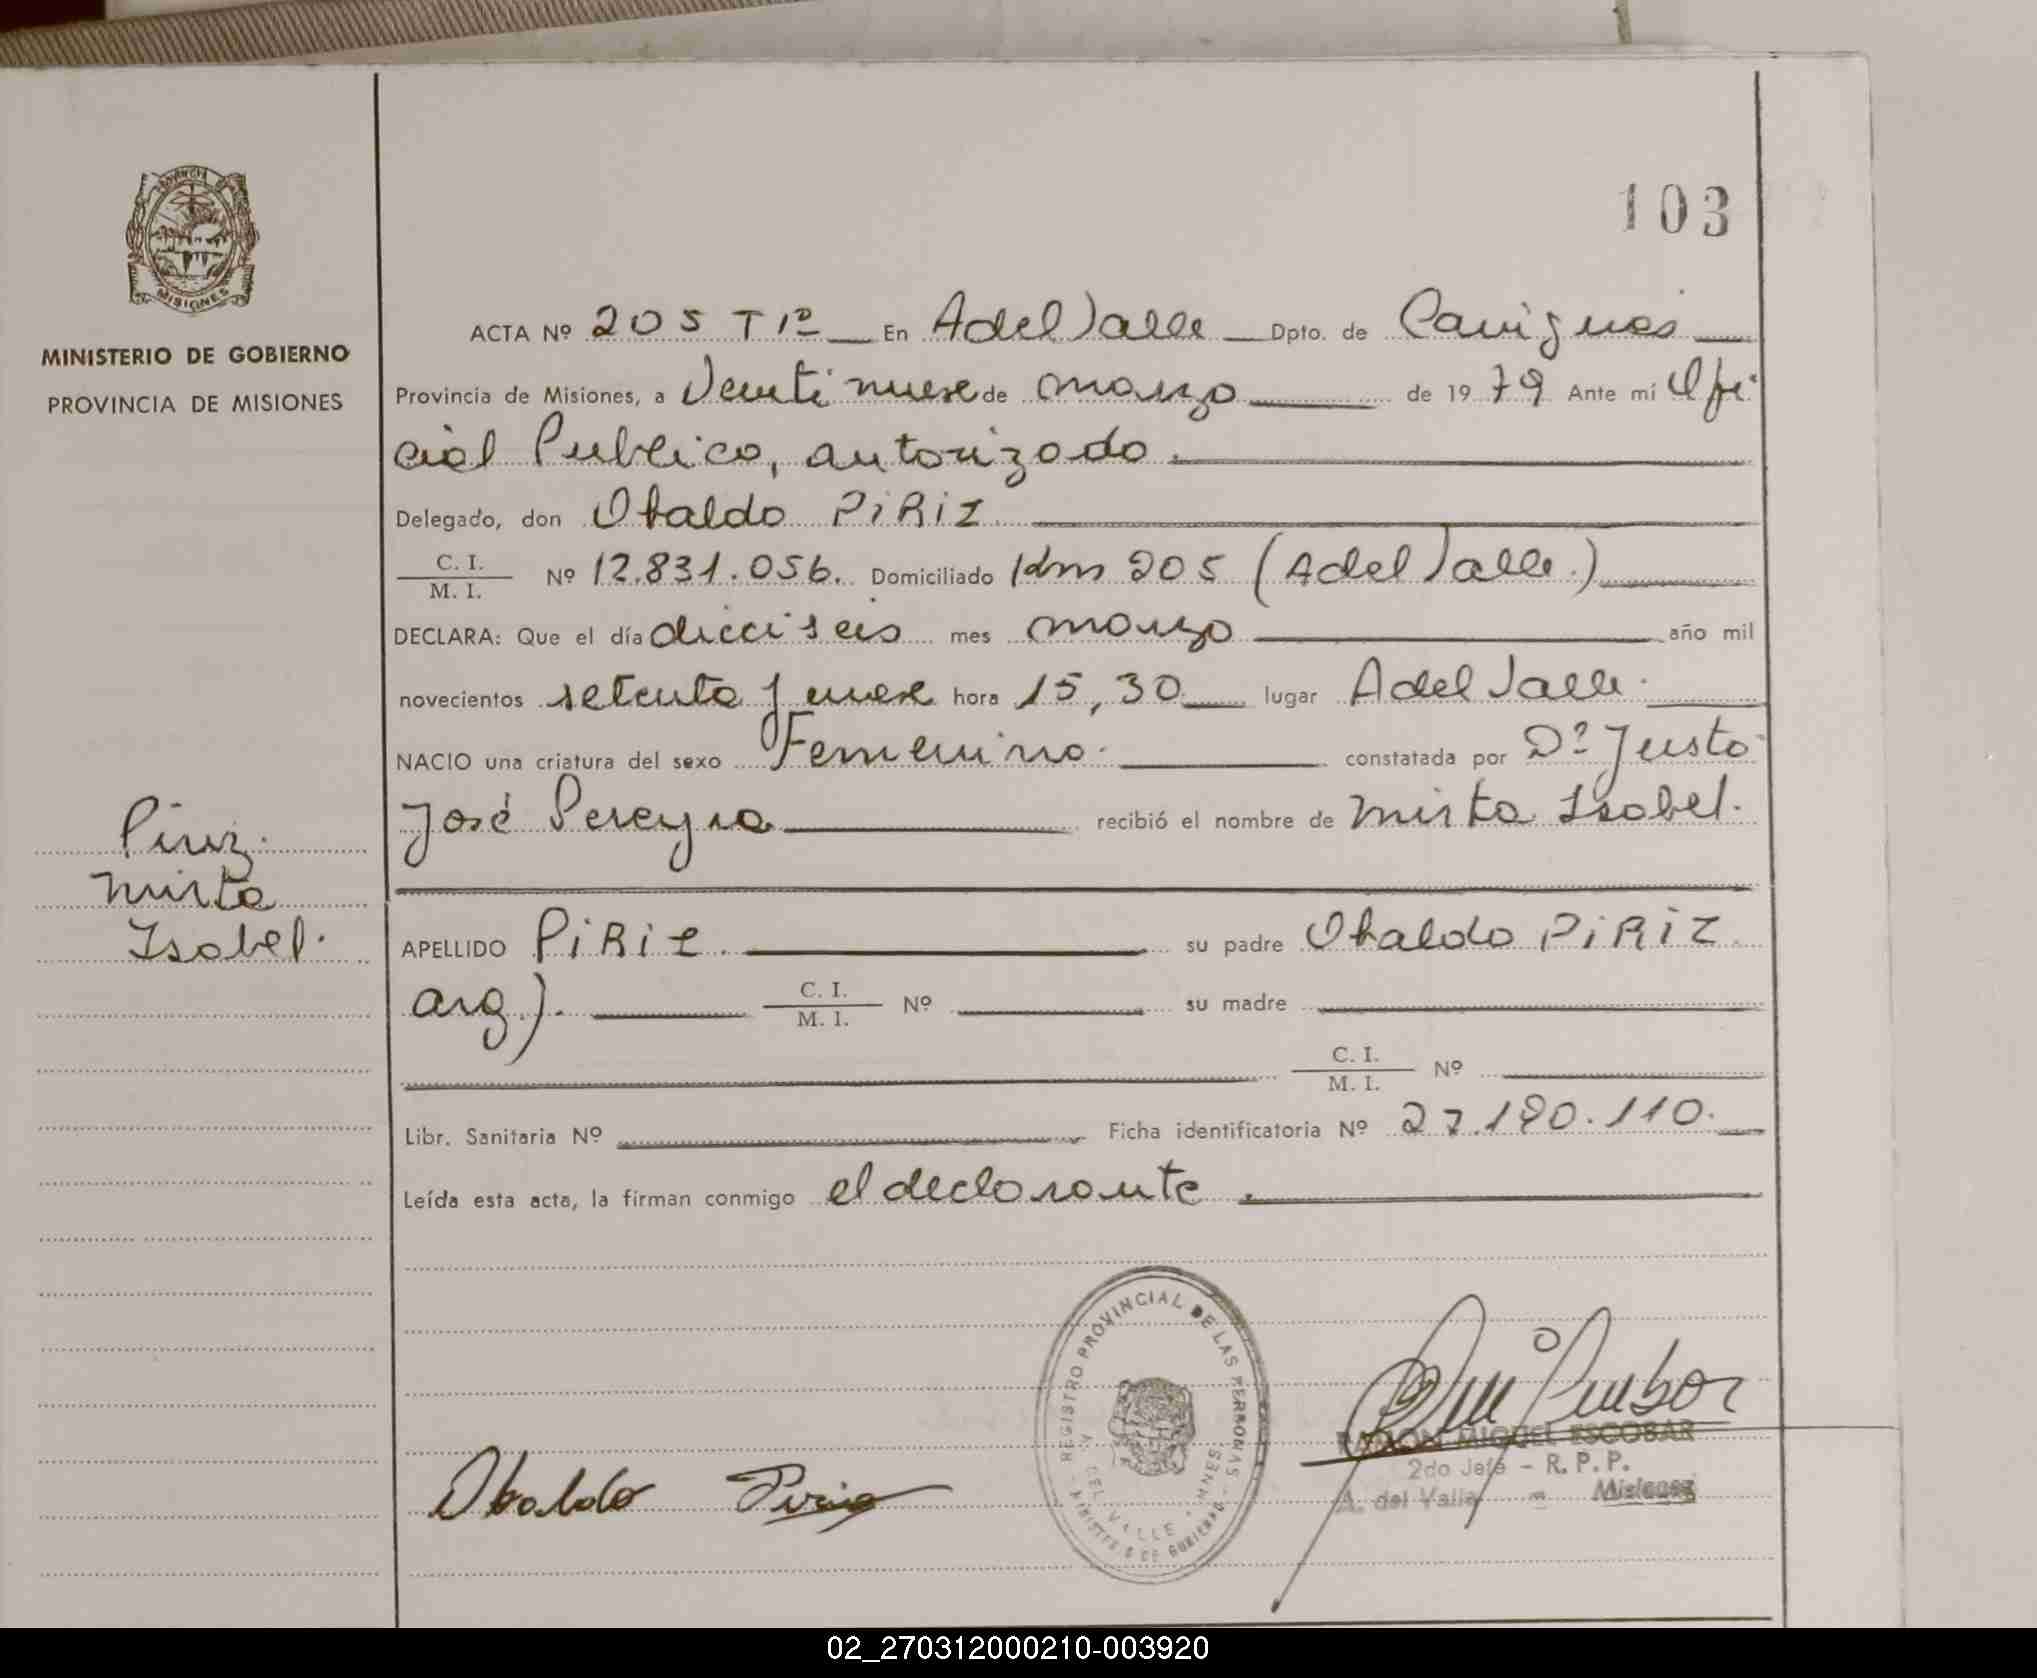 103
MINISTERIO DE GOBIERNO
PROVINCIA DE MISIONES
PROVINCIA
MISIONES
ACTA Nº 205 T 1º En A del Valle Dpto. de Cainguas
Provincia de Misiones, a Veinti nueve de marzo de 19 79 Ante mí Ofi
cial Publico, autorizado.
Delegado, don Obaldo PIRIZ
C. I.
M. I. Nº 12.831.056. Domiciliado Km 205 (A del Valle.)
DECLARA: Que el día dieciseis mes marzo año mil
novecientos setenta y nueve hora 15,30 lugar A del Valle.
NACIO una criatura del sexo Femenino. constatada por Dº Justo
José Pereyra recibió el nombre de Mirta Isabel.
Piriz.
Mirta
Isabel.
APELLIDO PIRIZ. su padre Obaldo PIRIZ
arg). C. I.
M. I. Nº su madre
C. I.
M. I. Nº
Libr. Sanitaria Nº Ficha identificatoria Nº 27.190.110.
Leída esta acta, la firman conmigo el declarante.
REGISTRO PROVINCIAL DE LAS PERSONAS
A. DEL VALLE - MNES
MINISTERIO DE GOBIERNO
Obaldo Piriz
RAMON MIGUEL ESCOBAR
2do Jefe - R. P. P.
A. del Valle - Misiones
02_270312000210-003920